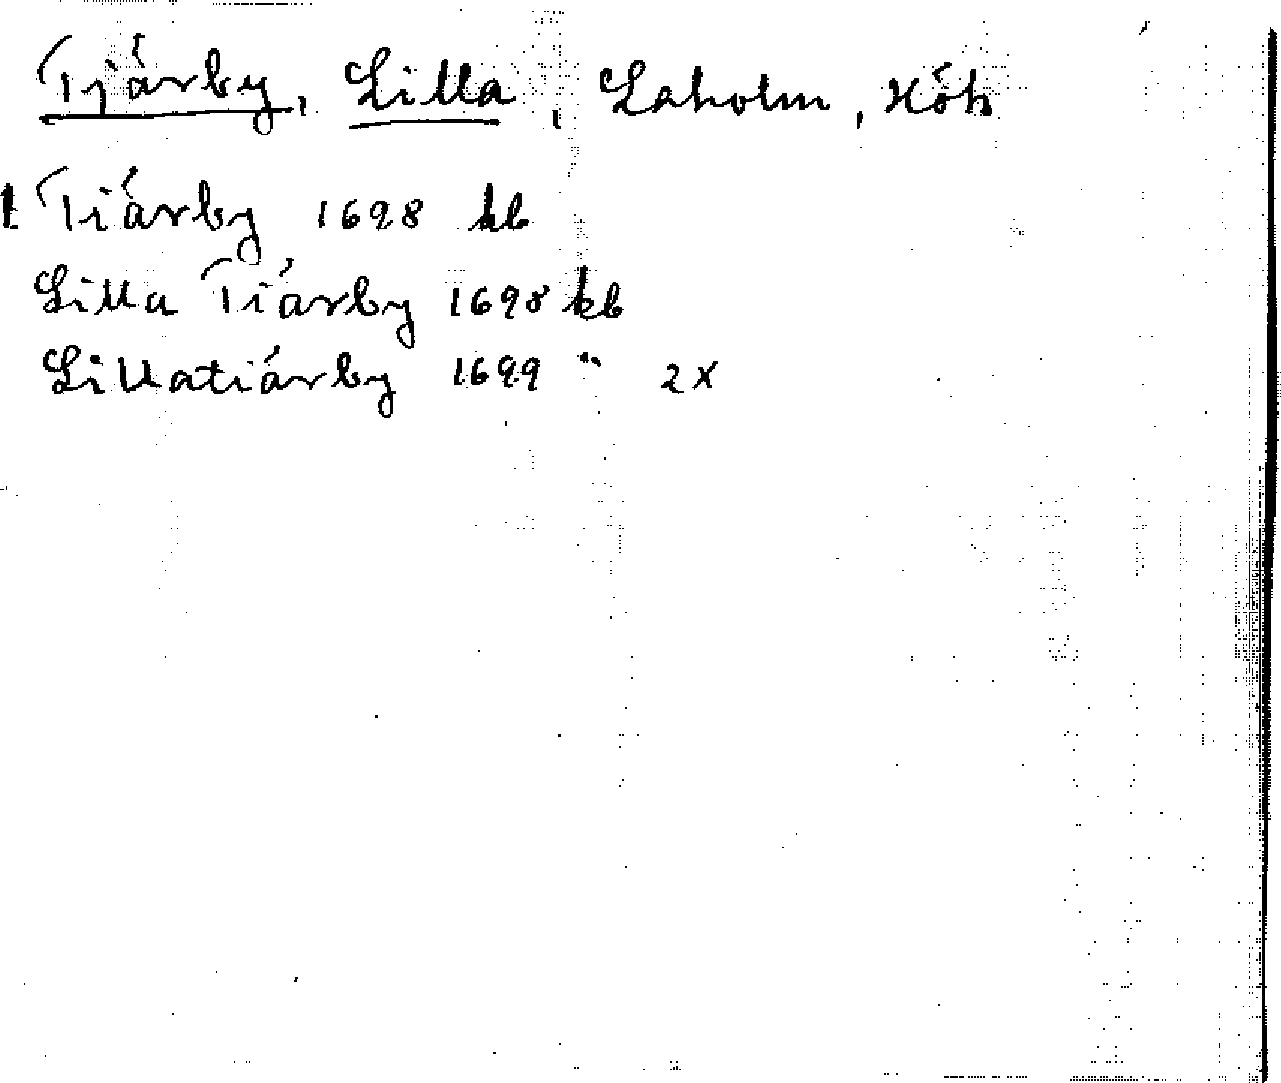 Tjärby, Lilla, Laholm, Höks
l Tiärby 1698 kb
Lilla Tiärby 1698 kb
Lillatiärby 1699 " 2x